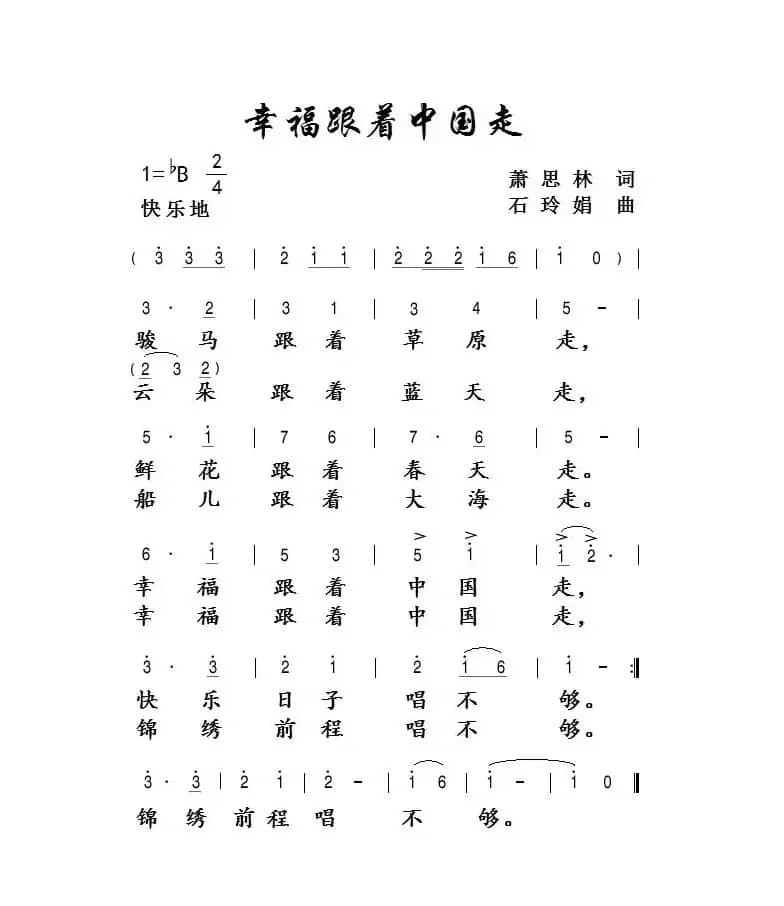 幸福跟着中国走
1=♭B 2/4
萧思林 词
快乐地
石玲娟 曲
( 3̇ 3̇ 3̇ | 2̇ 1̇ 1̇ | 2̇ 2̇ 2̇ 1̇ 6 | 1̇ 0 ) |
3 · 2 | 3 1 | 3 4 | 5 – |
骏马 跟着 草原 走，
( 2 3 2 )
云朵 跟着 蓝天 走，
5 · 1̇ | 7 6 | 7 · 6 | 5 – |
鲜花 跟着 春天 走。
船儿 跟着 大海 走。
> > > >
6 · 1̇ | 5 3 | 5 1̇ | 1̇ 2̇ · |
幸福 跟着 中国 走，
幸福 跟着 中国 走，
3̇ · 3̇ | 2̇ 1̇ | 2̇ 1̇ 6 | 1̇ – :‖
快乐 日子 唱不 够。
锦绣 前程 唱不 够。
3̇ · 3̇ | 2̇ 1̇ | 2̇ – | 1̇ 6 | 1̇ – | 1̇ 0 ‖
锦绣前程唱 不 够。